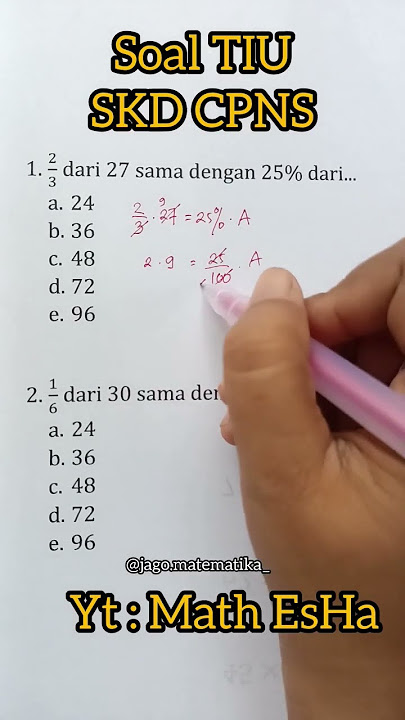 Soal TIU
SKD CPNS
1. 2/3 dari 27 sama dengan 25% dari...
a. 24
b. 36
c. 48
d. 72
e. 96
2/3 · 27 = 25% · A
9
2 · 9 = 25/100 · A
2. 1/6 dari 30 sama
a. 24
b. 36
c. 48
d. 72
e. 96
@jago.matematika_
Yt : Math EsHa